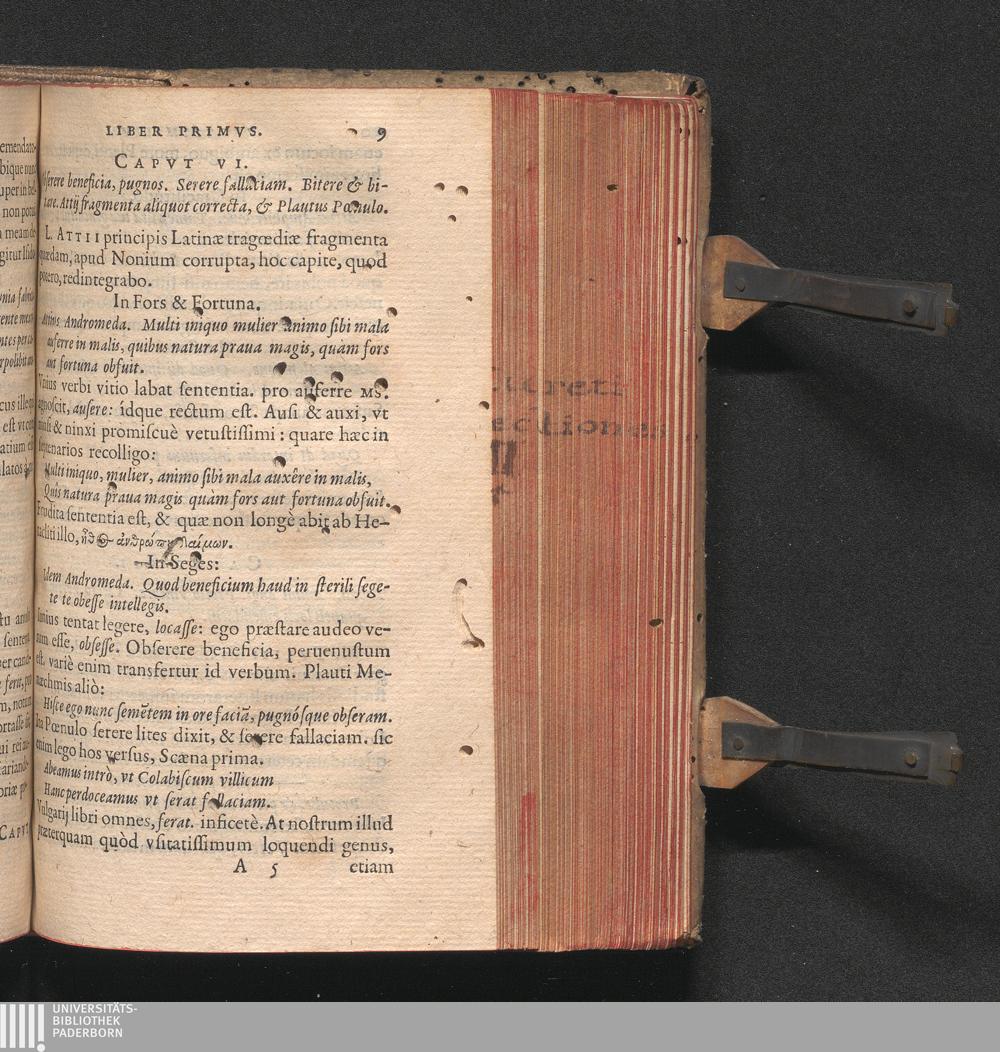 LIBER PRIMVS. 9
CAPVT VI.
beneficia, pugnos. Serere fallaciam. Bitere & bi-
tare. Attij fragmenta aliquot correcta, & Plautus Pœnulo.
L. ATTII principis Latinæ tragœdiæ fragmenta
quædam, apud Nonium corrupta, hoc capite, quod
potero, redintegrabo.
In Fors & Fortuna.
Attius Andromeda. Multi iniquo mulier animo sibi mala
auferre in malis, quibus natura praua magis, quàm fors
aut fortuna obfuit.
Vnius verbi vitio labat sententia. pro auferre MS.
agnoscit, ausere: idque rectum est. Ausi & auxi, vt
& ninxi promiscuè vetustissimi: quare hæc in
septenarios recolligo:
Multi iniquo, mulier, animo sibi mala auxêre in malis,
Quis natura praua magis quàm fors aut fortuna obfuit.
Erudita sententia est, & quæ non longè abit ab He-
racliti illo,
In Seges:
Idem Andromeda. Quod beneficium haud in sterili sege-
te te obesse intellegis.
Iunius tentat legere, locasse: ego præstare audeo ve-
rum esse, obsesse. Obserere beneficia, peruenustum
est. variè enim transfertur id verbum. Plauti Me-
næchmis aliò:
Hisce ego nunc semētem in ore faciā, pugnósque obseram.
In Pœnulo serere lites dixit, & serere fallaciam. sic
enim lego hos versus, Scæna prima.
Abeamus intrò, vt Colabiscum villicum
Hanc perdoceamus vt serat fallaciam.
Vulgatij libri omnes, ferat. inficetè. At nostrum illud
præterquam quòd vsitatissimum loquendi genus,
A 5 etiam
emendato-
non
CAPVT
UNIVERSITÄTS-
BIBLIOTHEK
PADERBORN